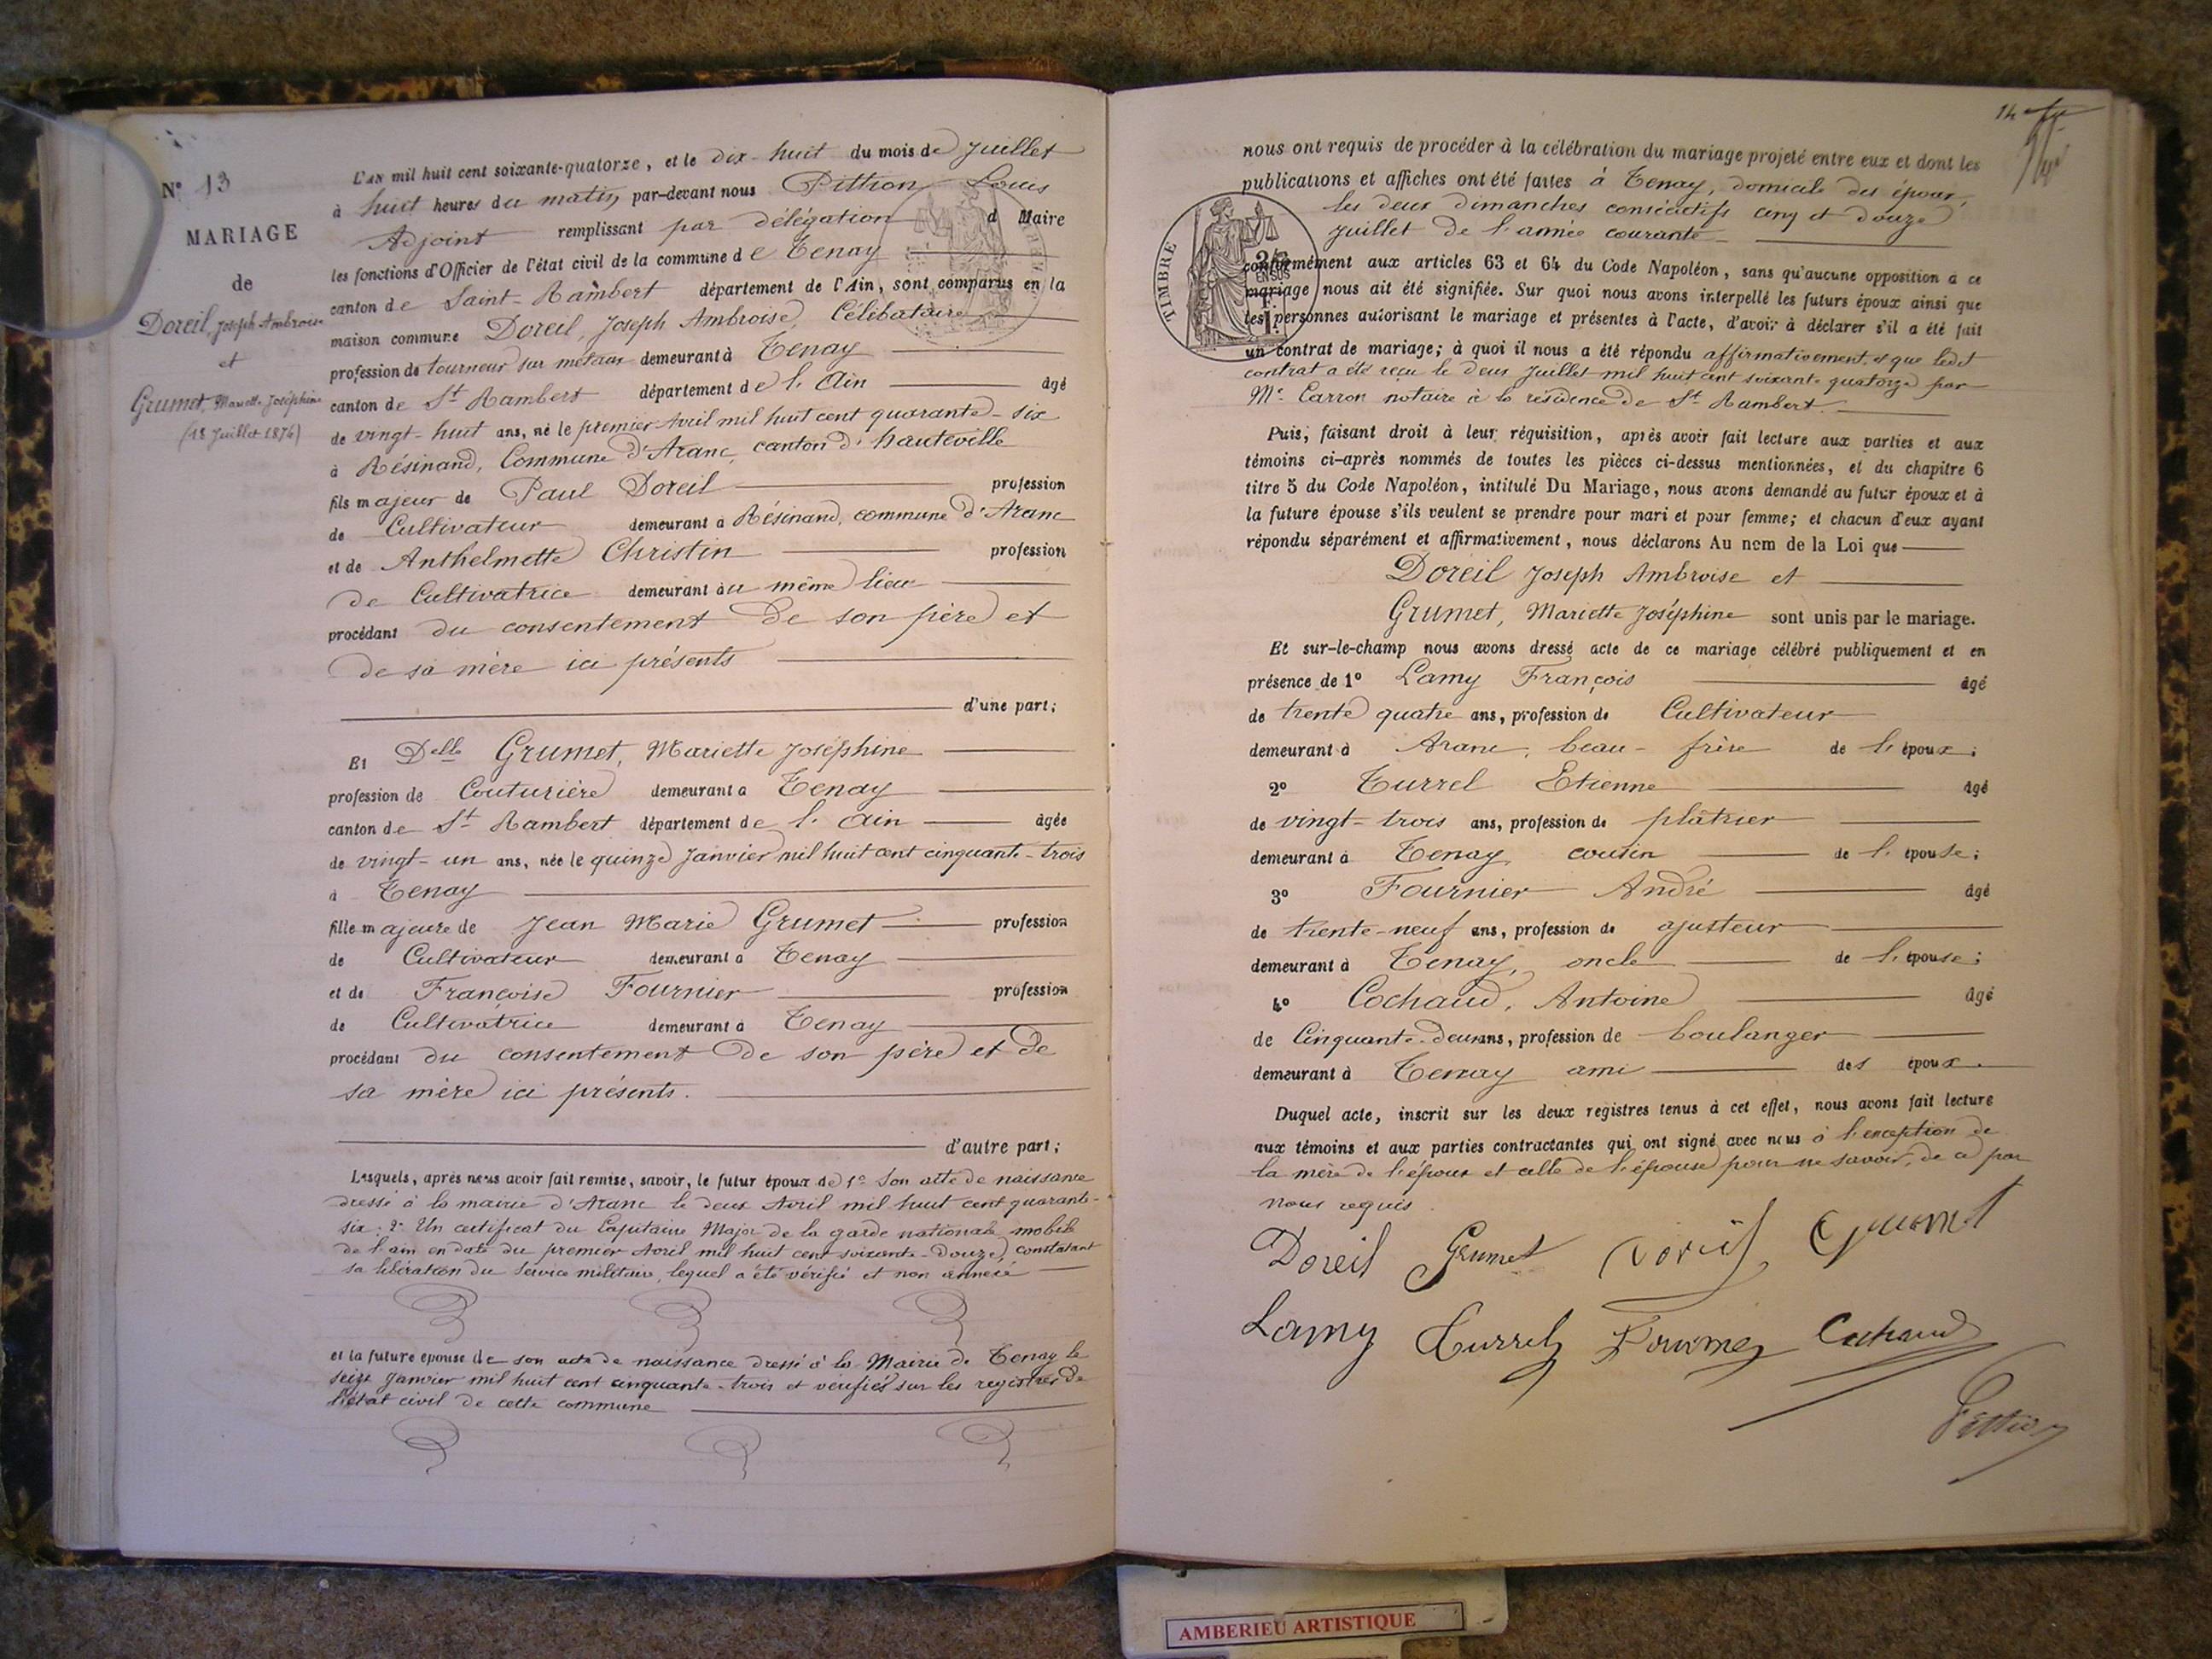 N° 13
MARIAGE
de
Doreil, Joseph Ambroise
et
Grumet, Mariette Joséphine
(18 Juillet 1874)
L'AN mil huit cent soixante-quatorze, et le dix-huit du mois de Juillet
à huit heures du matin, par-devant nous Pittion Louis
Adjoint remplissant par délégation d Maire
les fonctions d'Officier de l'état civil de la commune de Tenay
canton de Saint-Rambert département de l'Ain, sont comparus en la
maison commune Doreil, Joseph Ambroise, Célibataire
profession de tourneur sur métaux demeurant à Tenay
canton de St Rambert département de l'Ain âgé
de vingt-huit ans, né le premier Avril mil huit cent quarante-six
à Résinand, Commune d'Aranc, canton d'hauteville
fils majeur de Paul Doreil profession
de Cultivateur demeurant à Résinand, commune d'Aranc
et de Anthelmette Christin profession
de Cultivatrice demeurant au même lieu
procédant du consentement de son père et
de sa mère ici présents
d'une part;
Et Delle Grumet, Mariette Joséphine
profession de Couturière demeurant à Tenay
canton de St Rambert département de l'Ain âgée
de vingt-un ans, née le quinze Janvier mil huit cent cinquante-trois
à Tenay
fille majeure de Jean Marie Grumet profession
de Cultivateur demeurant à Tenay
et de Françoise Fournier profession
de Cultivatrice demeurant à Tenay
procédant du consentement de son père et de
sa mère ici présents.
d'autre part;
Lesquels, après nous avoir fait remise, savoir, le futur époux de 1° Son acte de naissance
dressé à la mairie d'Aranc le deux Avril mil huit cent quarante-
six: 2° Un certificat du Capitaine Major de la garde nationale mobile
de l'ain en date du premier Avril mil huit cent soixante-douze, constatant
sa libération du service militaire, lequel a été vérifié et non annexé
et la future épouse de son acte de naissance dressé à la Mairie de Tenay le
seize Janvier mil huit cent cinquante-trois et vérifiés sur les registres de
l'état civil de cette commune
14
nous ont requis de procéder à la célébration du mariage projeté entre eux et dont les
publications et affiches ont été faites à Tenay, domicile des époux,
les deux dimanches consécutifs cinq et douze
Juillet de l'année courante
TIMBRE
conformément aux articles 63 et 64 du Code Napoléon, sans qu'aucune opposition à ce
mariage nous ait été signifiée. Sur quoi nous avons interpellé les futurs époux ainsi que
les personnes autorisant le mariage et présentes à l'acte, d'avoir à déclarer s'il a été fait
un contrat de mariage; à quoi il nous a été répondu affirmativement, et que ledit
contrat a été reçu le deux Juillet mil huit cent soixante quatorze par
Me Carron notaire à la résidence de St Rambert.
Puis, faisant droit à leur réquisition, après avoir fait lecture aux parties et aux
témoins ci-après nommés de toutes les pièces ci-dessus mentionnées, et du chapitre 6
titre 5 du Code Napoléon, intitulé Du Mariage, nous avons demandé au futur époux et à
la future épouse s'ils veulent se prendre pour mari et pour femme; et chacun d'eux ayant
répondu séparément et affirmativement, nous déclarons Au nom de la Loi que
Doreil Joseph Ambroise et
Grumet, Mariette Joséphine sont unis par le mariage.
Et sur-le-champ nous avons dressé acte de ce mariage célébré publiquement et en
présence de 1° Lamy François âgé
de trente quatre ans, profession de Cultivateur
demeurant à Aranc, beau-frère de l'époux;
2° Turrel Etienne âgé
de vingt-trois ans, profession de plâtrier
demeurant à Tenay, cousin de l'épouse;
3° Fournier André âgé
de trente-neuf ans, profession de ajusteur
demeurant à Tenay, oncle de l'épouse;
4° Cochaud, Antoine âgé
de Cinquante-deux ans, profession de boulanger
demeurant à Tenay ami des époux.
Duquel acte, inscrit sur les deux registres tenus à cet effet, nous avons fait lecture
aux témoins et aux parties contractantes qui ont signé avec nous à l'exception de
la mère de l'époux et celle de l'épouse pour ne savoir, de ce par
nous requis.
Doreil Grumet Doreil Grumet
Lamy Turrel Fournier Cochaud
Pittion
AMBERIEU ARTISTIQUE